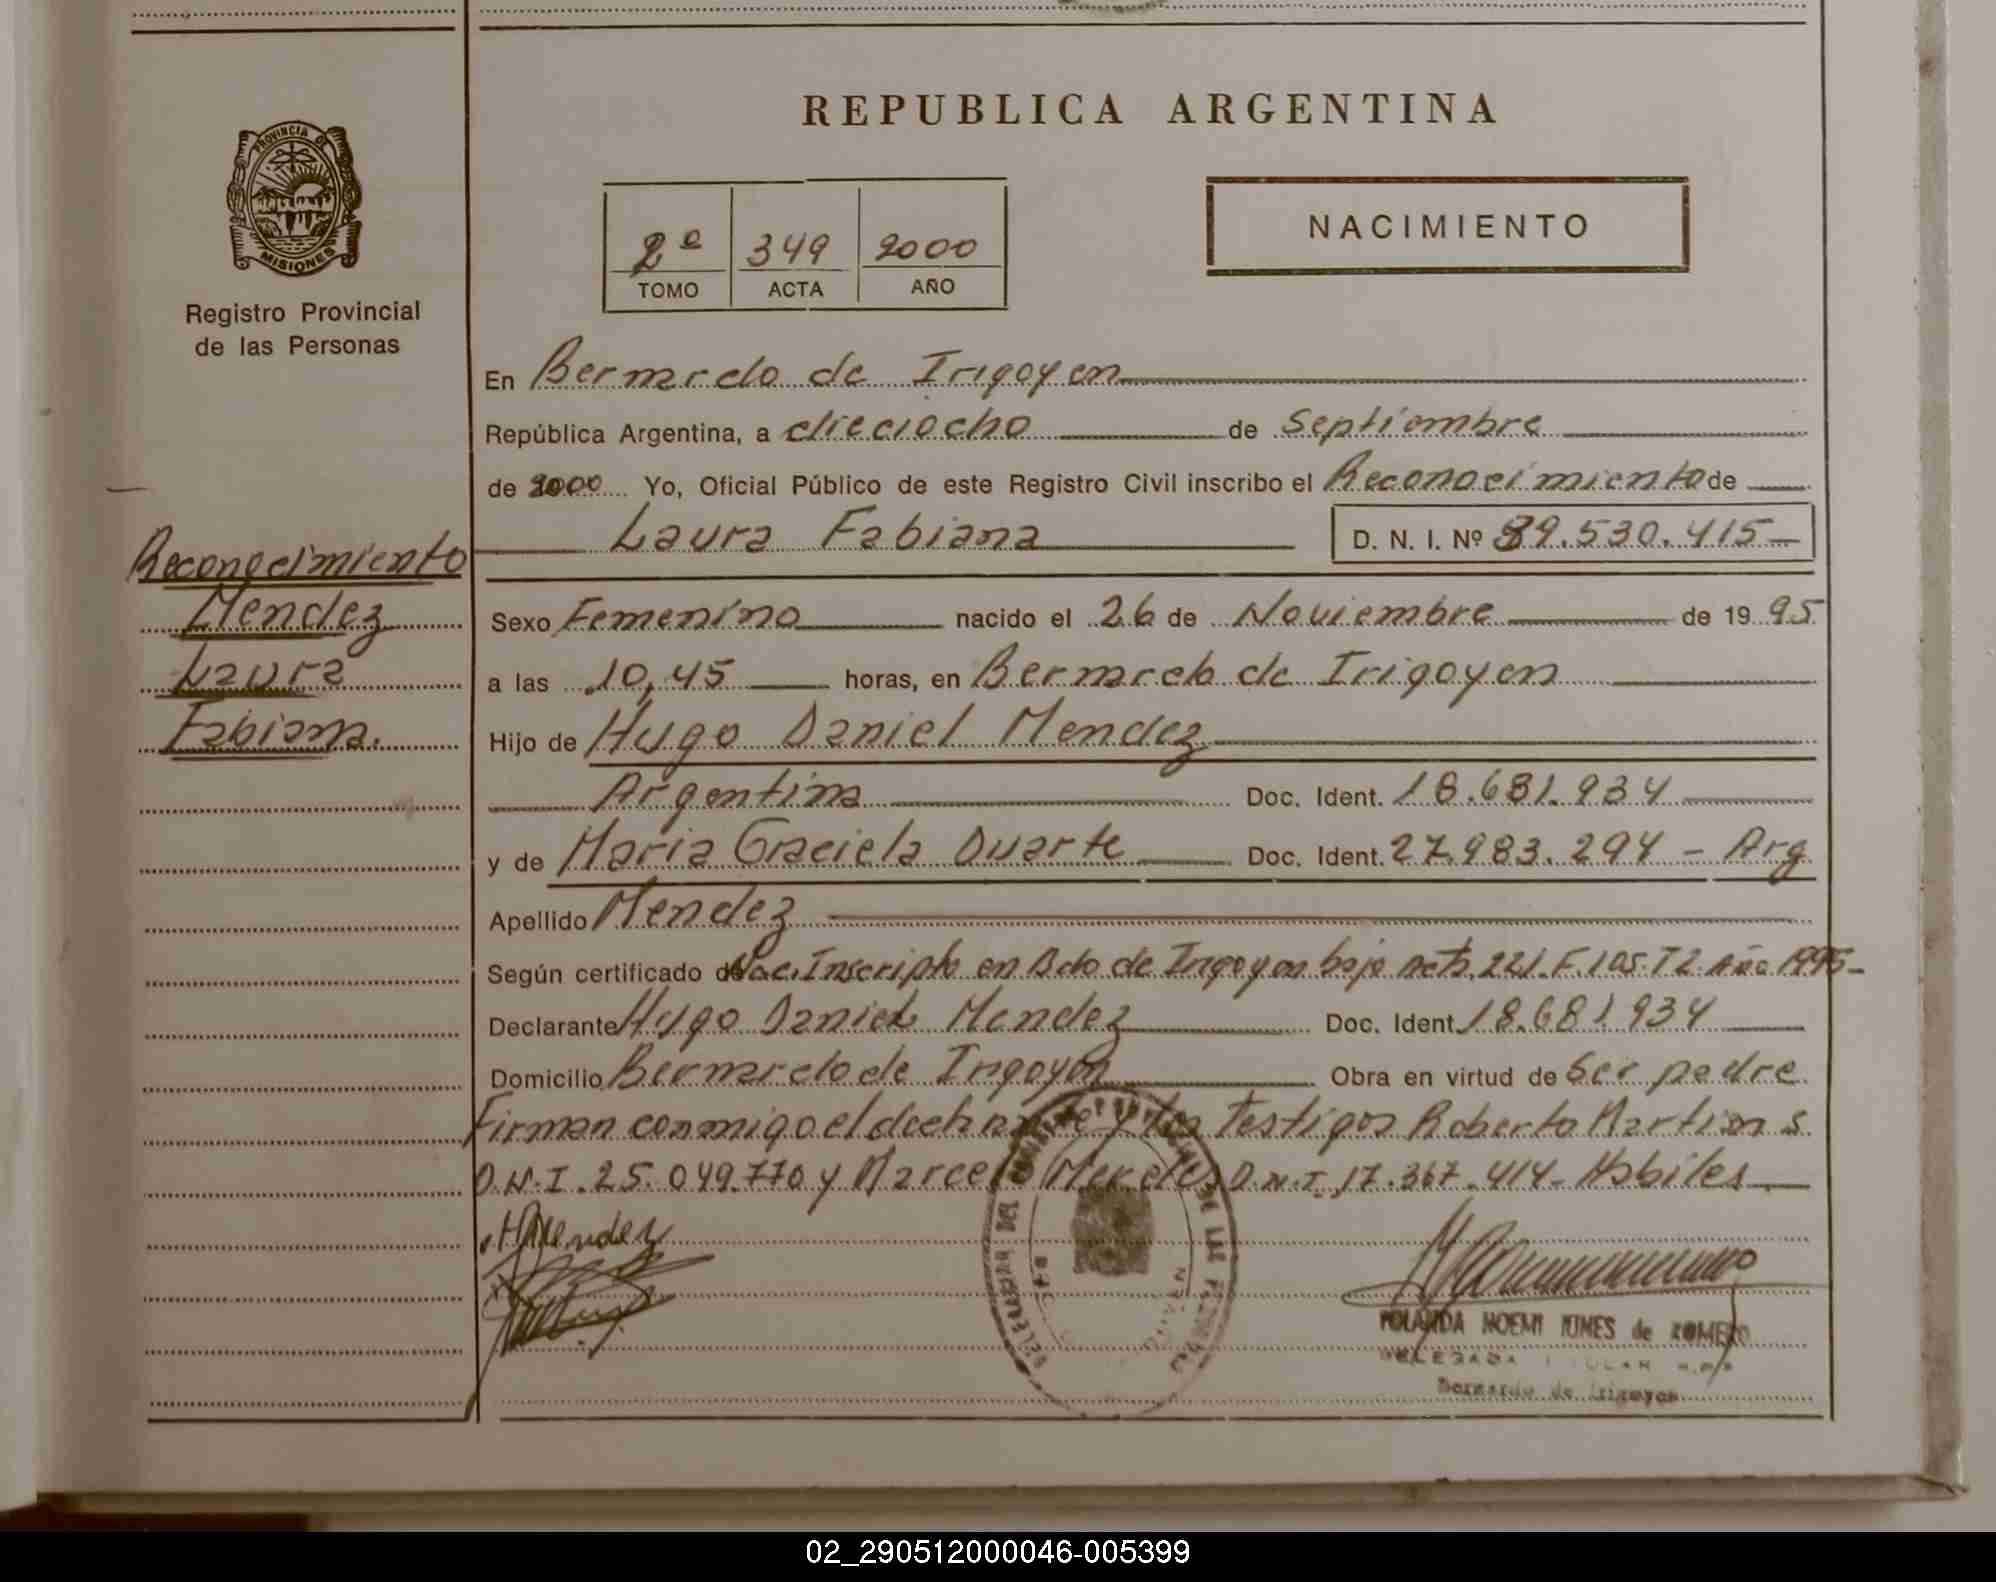 REPUBLICA ARGENTINA
PROVINCIA DE
MISIONES
Registro Provincial
de las Personas
NACIMIENTO
2º 349 2000
TOMO ACTA AÑO
En Bernardo de Irigoyen
República Argentina, a dieciocho de Septiembre
de 2000 Yo, Oficial Público de este Registro Civil inscribo el Reconocimiento de
Laura Fabiana D. N. I. Nº 39.530.415
Reconocimiento
Mendez
Laura
Fabiana.
Sexo Femenino nacido el 26 de Noviembre de 1995
a las 10,45 horas, en Bernardo de Irigoyen
Hijo de Hugo Daniel Mendez
Argentina Doc. Ident. 18.681.934
y de Maria Graciela Duarte Doc. Ident. 27.983.294 - Arg
Apellido Mendez
Según certificado de Nac. Inscripto en Bdo de Irigoyen bajo acta 221. F. 105. T2. Año 1995-
Declarante Hugo Daniel Mendez Doc. Ident. 18.681.934
Domicilio Bernardo de Irigoyen Obra en virtud de Ser padre
Firman conmigo el declarante y los Testigos Roberto Martin s
D.N.I. 25.049.770 y Marcelo Mereles D.N.I. 17.367.414- Habiles
HMendez
YOLANDA NOEMI NUNES de ROMERO
DELEGADA TITULAR R.P.P
Bernardo de Irigoyen
02_290512000046-005399